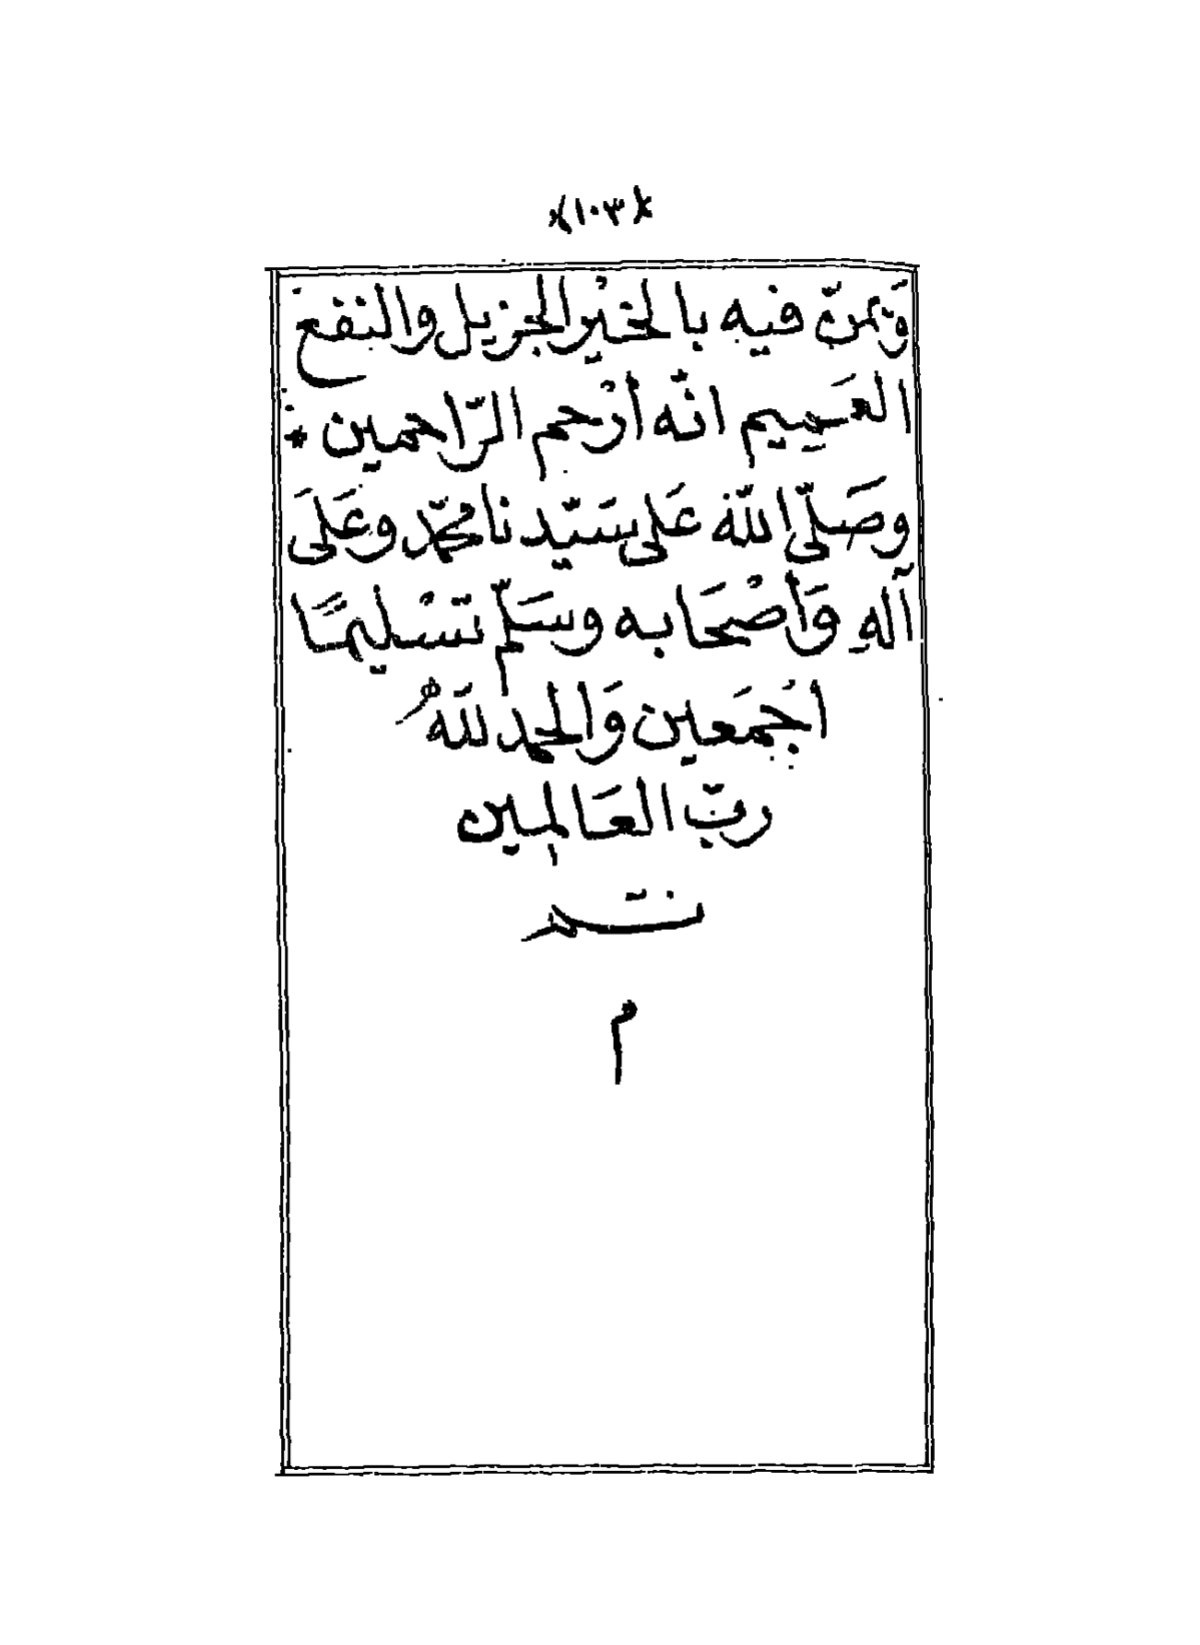 ﴿١٠٣﴾
وَيمنّ فيه بالخيْر الجزيل والنفع
العَمِيم انّه أرْحم الرّاحمين *
وصَلّى اللّه عَلى سَيّدنا محمّد وعَلَى
آلهِ وَأصْحَابه وسَلّم تسْليمًا
اجْمَعين وَالحمد للّهُ
ربّ العَالمِين
تم
م